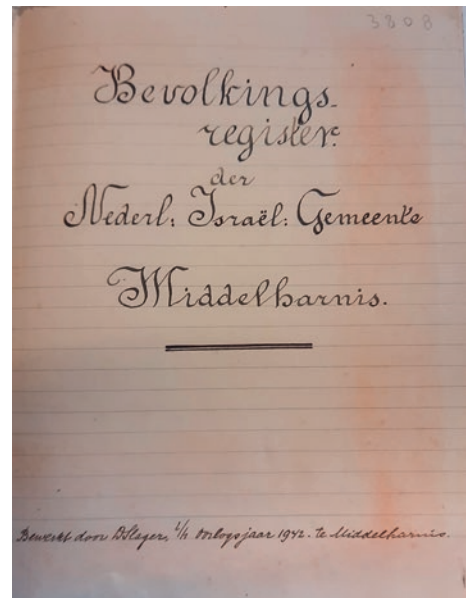 3808
Bevolkings-
register.
der
Nederl: Israël: Gemeente
Middelharnis.
Bewerkt door D Slager, i/h Oorlogsjaar 1942. te Middelharnis.